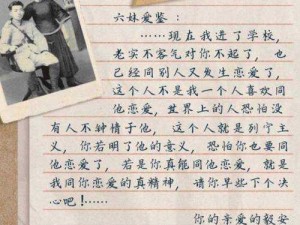 六妹爱鉴：
……现在我进了学校，
老实不客气对你不起了，也
已经同别人又发生恋爱了，
这个人不是我一个人喜欢同
他恋爱，世界上的人恐怕没
有人不钟情于他，这个人就是列宁主
义，你若明了他的意义，恐怕你也要同
他恋爱了，若是你真能同他恋爱，就是
我同你恋爱的真精神，请你早些下个决
心吧！……
你的亲爱的毅安